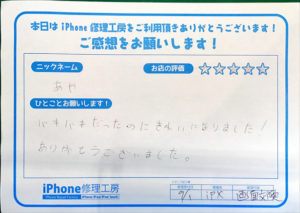 本日は iPhone 修理工房をご利用頂きありがとうございます!
ご感想をお願いします!
ニックネーム
お店の評価 ☆☆☆☆☆
あや
ひとことお願いします!
バキバキだったのにきれいになりました!
ありがとうございました。
iPhone修理工房
9/1 iPX 画面交換